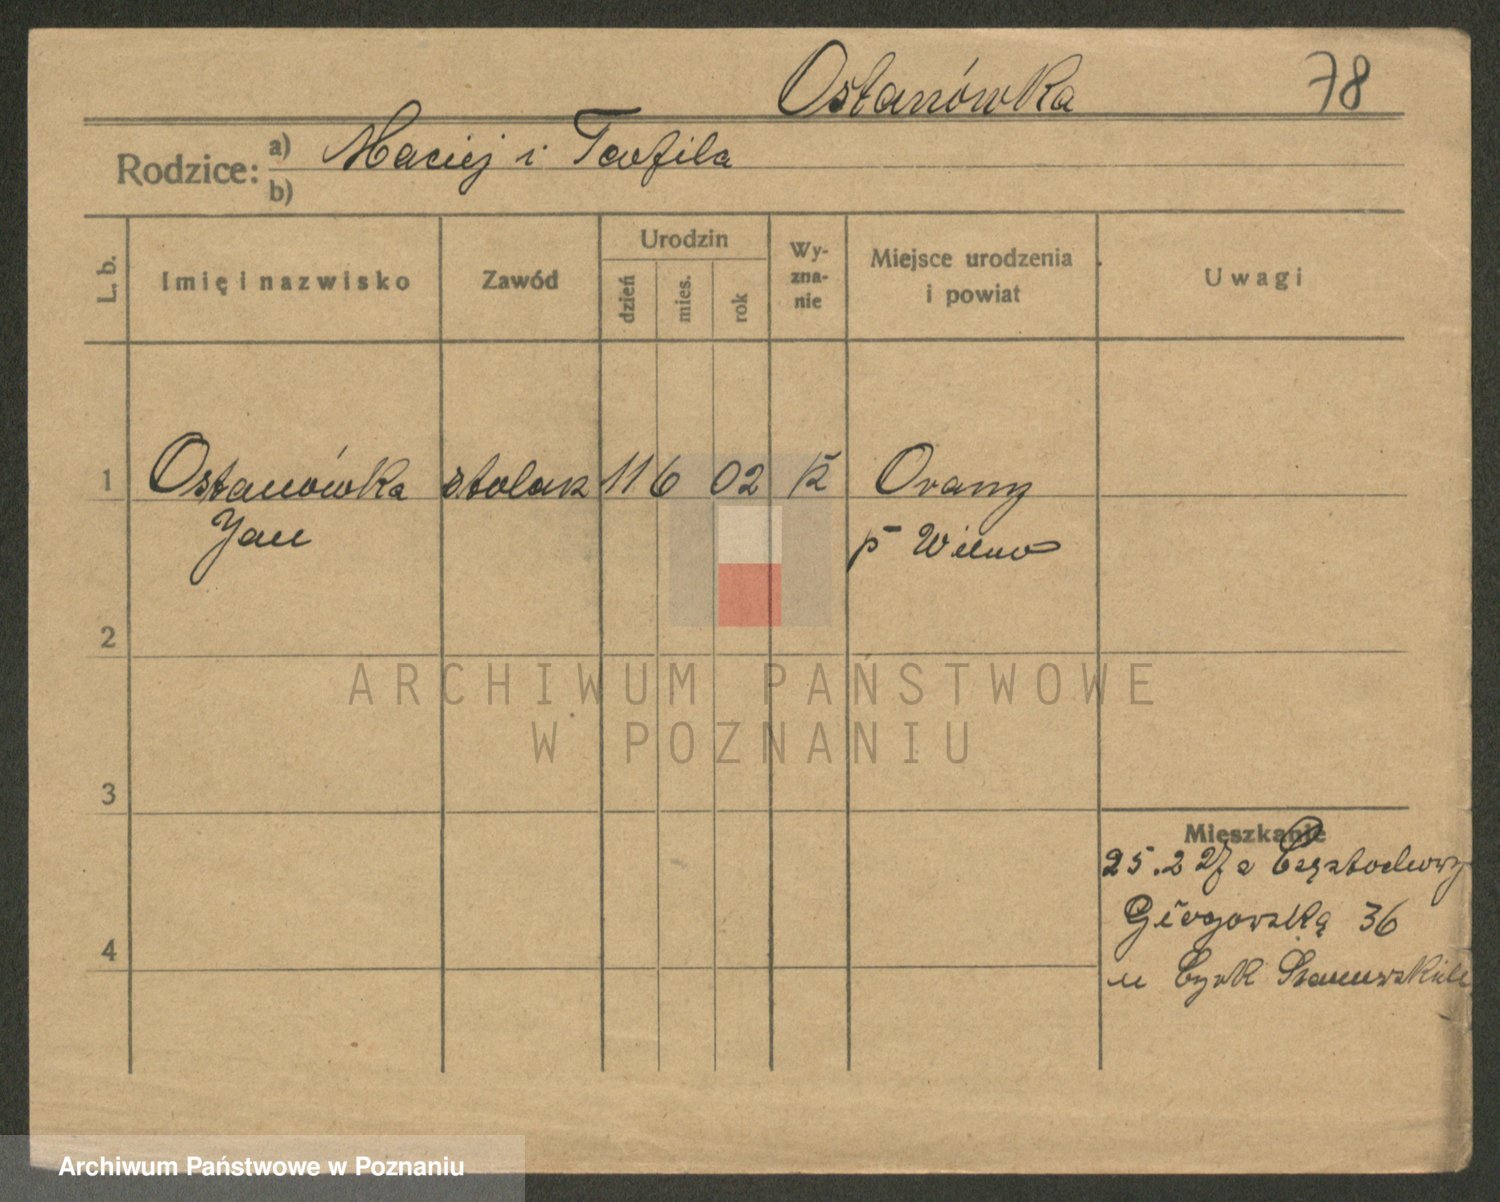 Ostanówka 78
Rodzice: a) Maciej i Teofila
b)
L. b. Imię i nazwisko Zawód Urodzin dzień mies. rok Wy-zna-nie Miejsce urodzenia i powiat Uwagi
1 Ostanówka stolarz 11 6 02 k Orany
Jan p Wilno
2
ARCHIWUM PAŃSTWOWE
W POZNANIU
3
Mieszkanie
25.2 27 z Częstochowy
Głogowska 36
4
u Cyrk Staniewskich
Archiwum Państwowe w Poznaniu